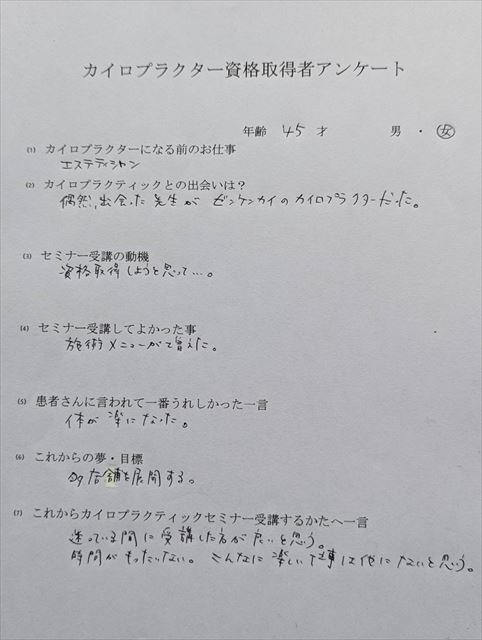 カイロプラクター資格取得者アンケート
年齢 45 才 男 ・ 女
(1) カイロプラクターになる前のお仕事
エステティシャン
(2) カイロプラクティックとの出会いは？
偶然、出会った先生がゼンケンカイのカイロプラクターだった。
(3) セミナー受講の動機
資格取得しようと思って…。
(4) セミナー受講してよかった事
施術メニューがて増えた。
(5) 患者さんに言われて一番うれしかった一言
体が楽になった。
(6) これからの夢・目標
多店舗を展開する。
(7) これからカイロプラクティックセミナー受講するかたへ一言
迷っている間に受講した方が良いと思う。
時間がもったいない。こんなに楽しい仕事は他にないと思う。